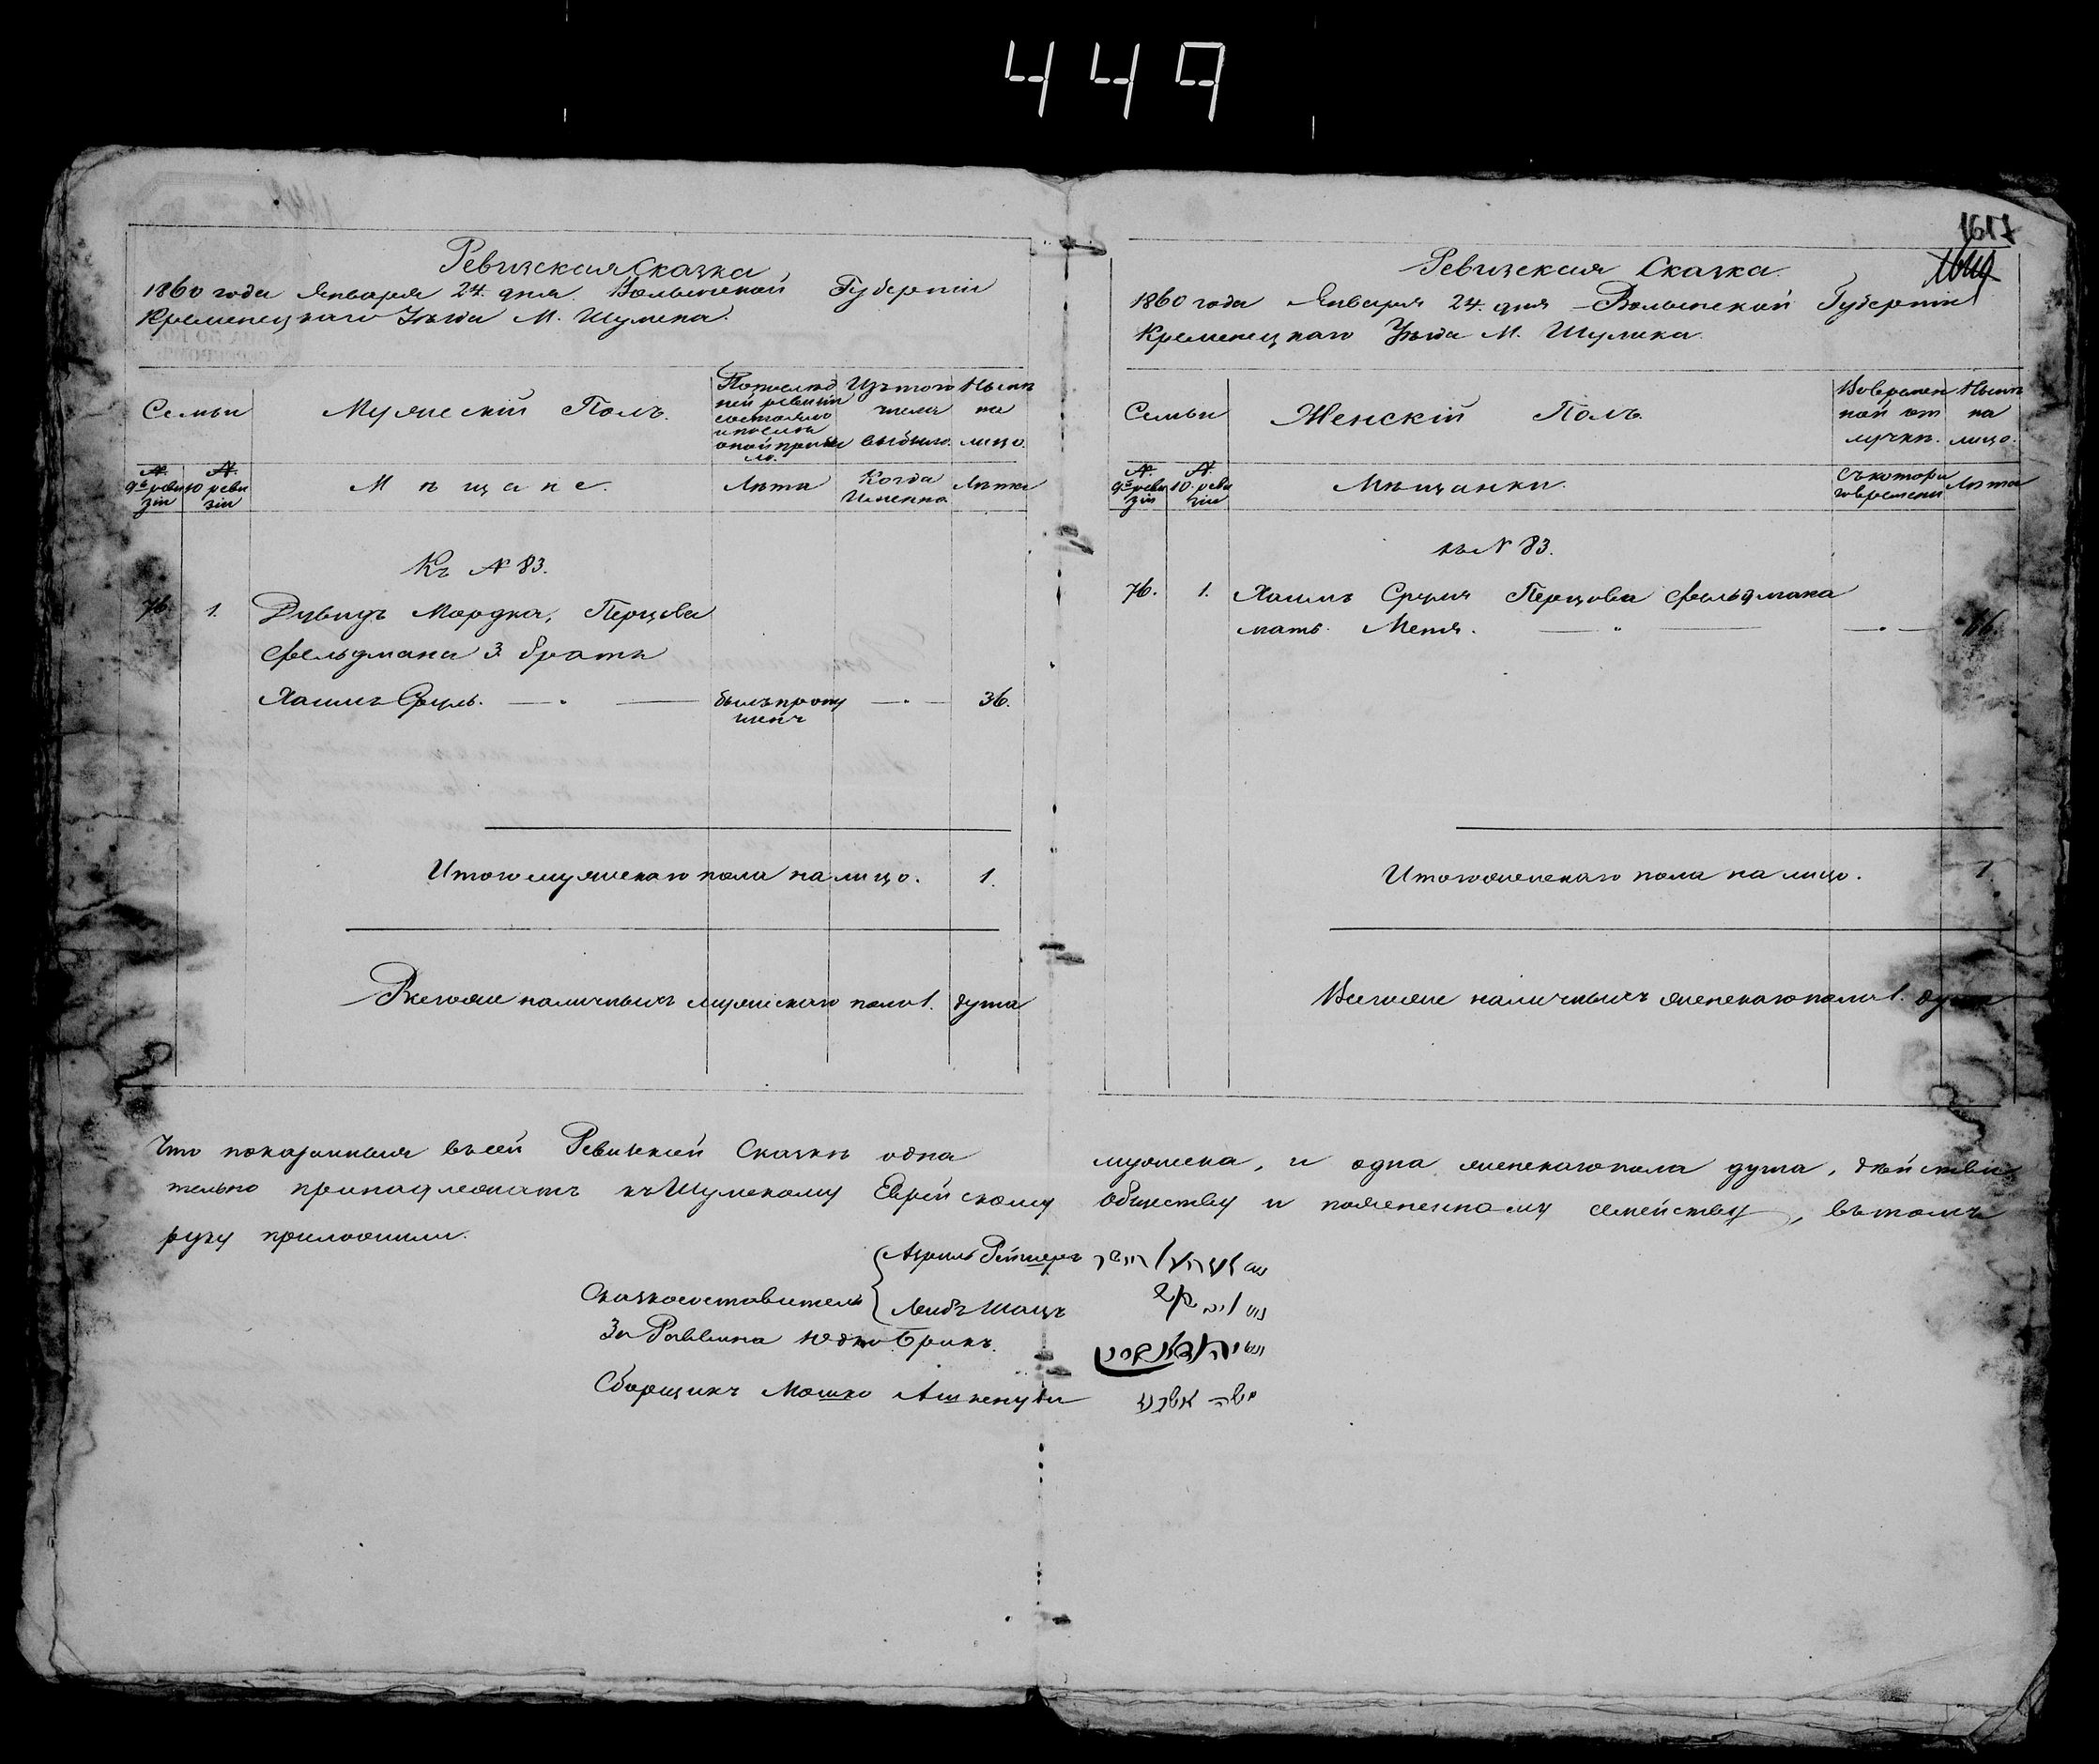 449
Ревизская Сказка
1860 года Января 24. дня. Волынской Губернiи
Кременецкаго Уѣзда М. Шумска.
Семьи
Мужескiй Полъ.
По послѣд
ней ревизiи
состояло
и послѣ
оной прибы
ло.
Изъ того
числа
выбыло.
Нынѣ
на
лицо.
№.
9й реви
зiи
№.
10 реви
зiи
Мѣщане.
Лѣта
Когда
Именно
Лѣта
Къ № 83.
76. 1. Дувидъ Мордка, Перцова
Фельдмана 3. братъ
Хаимъ Сруль. былъ пропу 36.
щенъ
Итого мужескаго пола на лицо. 1.
Всего же наличныхъ мужескаго пола 1. душа
1617
Ревизская Сказка.
1860 года Января 24. дня Волынской Губернiи
Кременецкаго Уѣзда М. Шумска.
Семьи
Женскiй Полъ.
Во времен
ной от
лучкѣ.
Нынѣ
на
лицо.
№.
9й реви
зiи
№.
10. реви
зiи
Мѣщанки.
Съ котора
го времени
Лѣта
къ № 83.
76. 1. Хаимъ Сруля Перцова Фельдмана
мать. Меня.
Итого женскаго пола на лицо. 1.
Всего же наличныхъ женскаго пола 1. душа
Что показанныя въ сей Ревизской Сказкѣ одна мужеска, и одна женскаго пола душа, дѣйстви
тельно принадлежатъ къ Шумскому Еврейскому обществу и поясненному семейству, въ томъ
руку приложили.
Сказкосоставители
Лейбъ Шацъ
За Раввина Юдко Брикъ.
Сборщикъ Мошко Ашкенузи